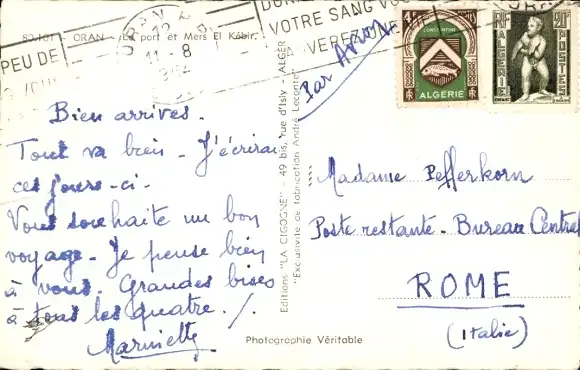 80.101 - ORAN - Le port et Mers El Kébir.
ORAN
12
11 - 8
1952
PEU DE
VOTRE SANG
Par Avion
4F
CONSTANTINE
ALGÉRIE
RF
20F
POSTES
ALGERIE
Bien arrivés.
Tout va bien - J'écrirai
ces jours-ci.
Vous souhaite un bon
voyage. Je pense bien
à vous. Grandes bises
à tous les quatre ./.
Marinette
Editions "LA CIGOGNE" - 49 bis, rue d'Isly - ALGER
"Exclusivité de fabrication André Leconte"
Madame Pefferkorn
Poste restante - Bureau Central
ROME
(Italie)
Photographie Véritable